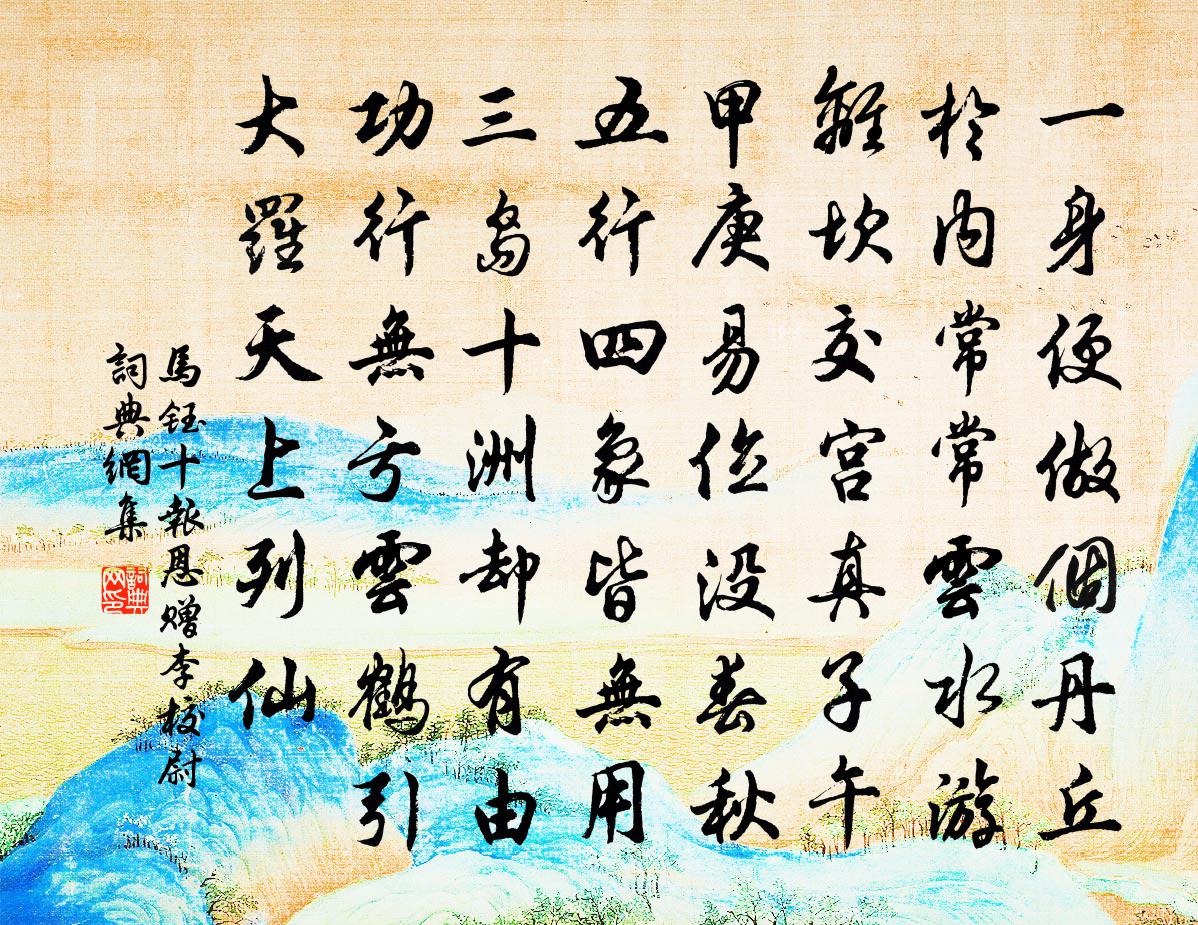 一身便做個丹丘
於內常常雲水游
離坎交宮真子午
甲庚易位没春秋
五行四象皆無用
三島十洲却有由
功行無亏雲鶴引
大羅天上列仙
馬鈺十報恩赠李校尉
詞典網集